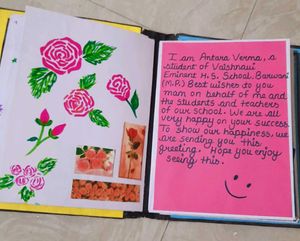 I am Antara Verma, a
student of Vaishnavi
Eminent H.S. School, Barwani
(M.P.) Best wishes to you
mam on behalf of me and
the students and teachers
of our school. We are all
very happy on your success.
To show our happiness, we
are sending you this
greeting. Hope you enjoy
seeing this.